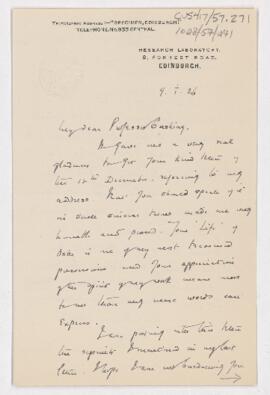 TELEGRAPHIC ADDRESS "SPECIMEN, EDINBURGH"
TELEPHONE No 933 CENTRAL.
CUS417/57.271
1028/57(271)
RESEARCH LABORATORY,
2, FORREST ROAD,
EDINBURGH.
9. I. 26
My dear Professor Cushing,
It gave me a very real
pleasure to get your kind letter of
the 12th December, referring to my
address. That you should speak of it
in such terms made me very
humble and proud. Your 'Life' of
Osler is my most treasured
possession and your appreciation
means more
to me than any words can
express.
I am posting with this letter
the reprints I mentioned in my last
letter. I hope I am not burdening you